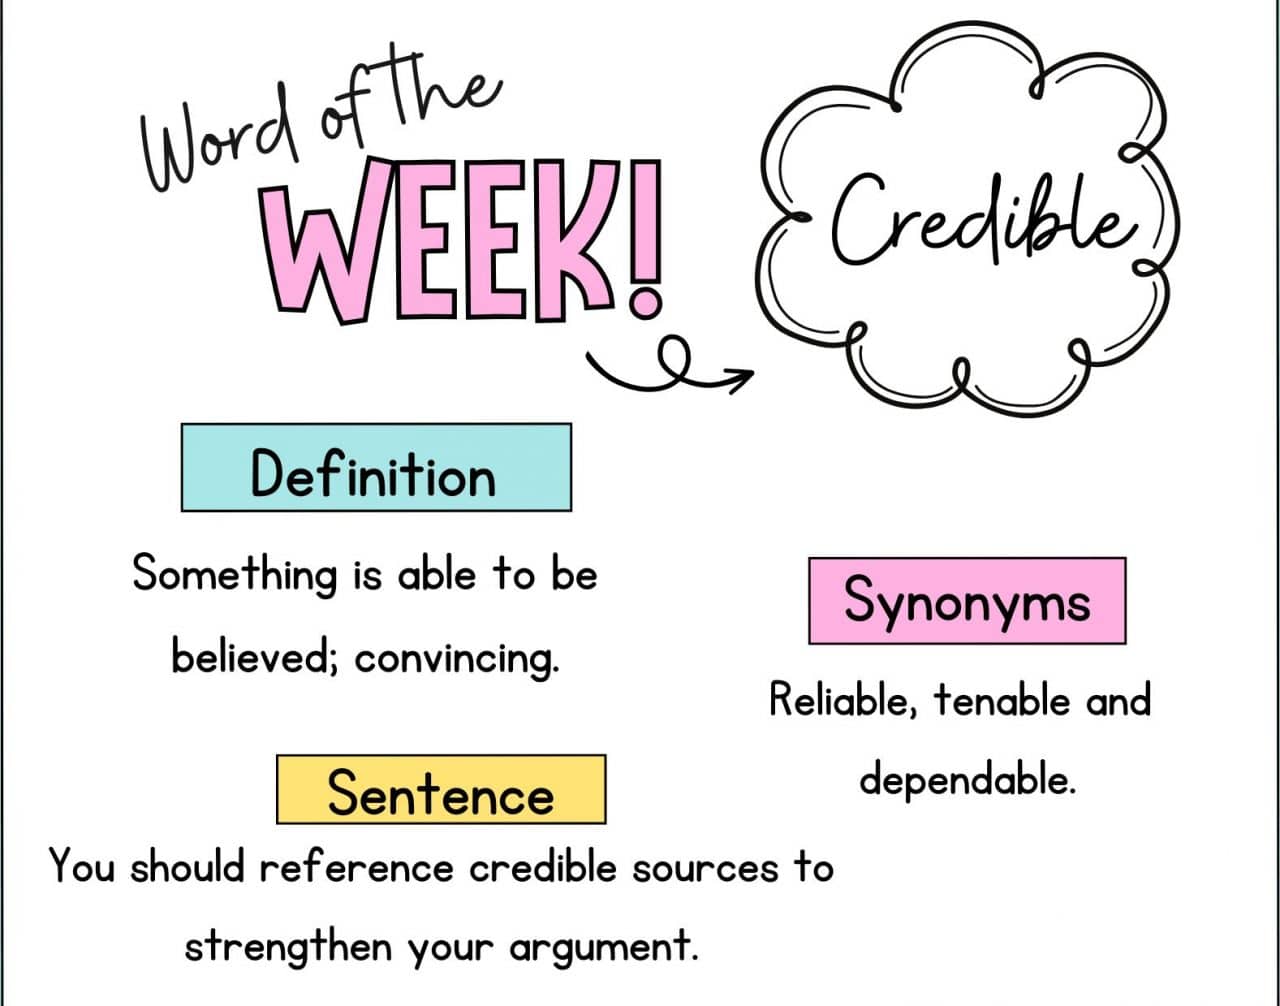 Word of the
WEEK!
Credible
Definition
Something is able to be
believed; convincing.
Synonyms
Reliable, tenable and
dependable.
Sentence
You should reference credible sources to
strengthen your argument.